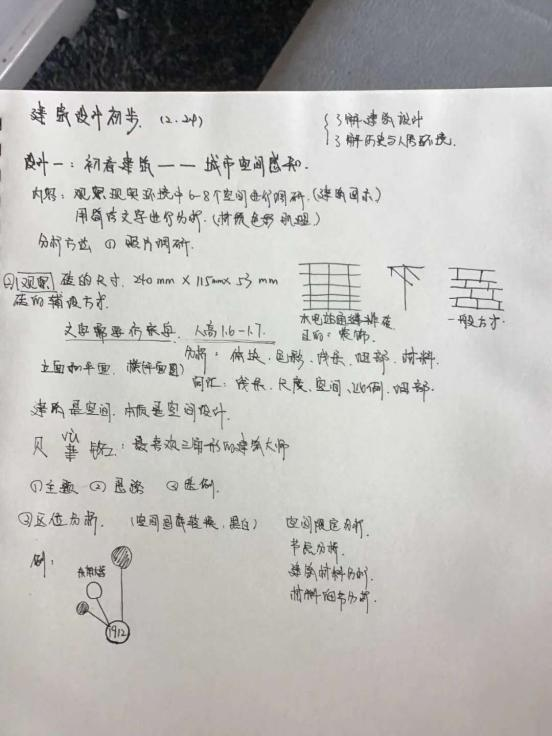 建筑设计初步. (2.24)
了解建筑设计
了解历史与人居环境.
设计一：初看建筑——城市空间感知.
内容：观察现实环境中6-8个空间进行调研.(建筑图术)
用简洁文字进行分析.(材质色彩肌理)
分析方法 ① 照片调研.
② 观察 砖的尺寸. 240mm×115mm×53mm
砖的铺设方式.
水电站通缝排砖 一般方式.
目的：装饰.
文字需要仿宋字. 人高1.6-1.7.
分析：体块、色彩、线条、细部、材料.
立面和平面. 横(平面图)
词汇：线条、尺度、空间、比例、细部.
建筑是空间. 本质是空间设计.
贝聿铭：最喜欢三角形的建筑大师
①主题 ②思路 ③图例.
③区位分析. (空间图底转换.黑白) 空间限定分析.
节点分析.
例： 建筑材料分析.
材料细节分析.
1912